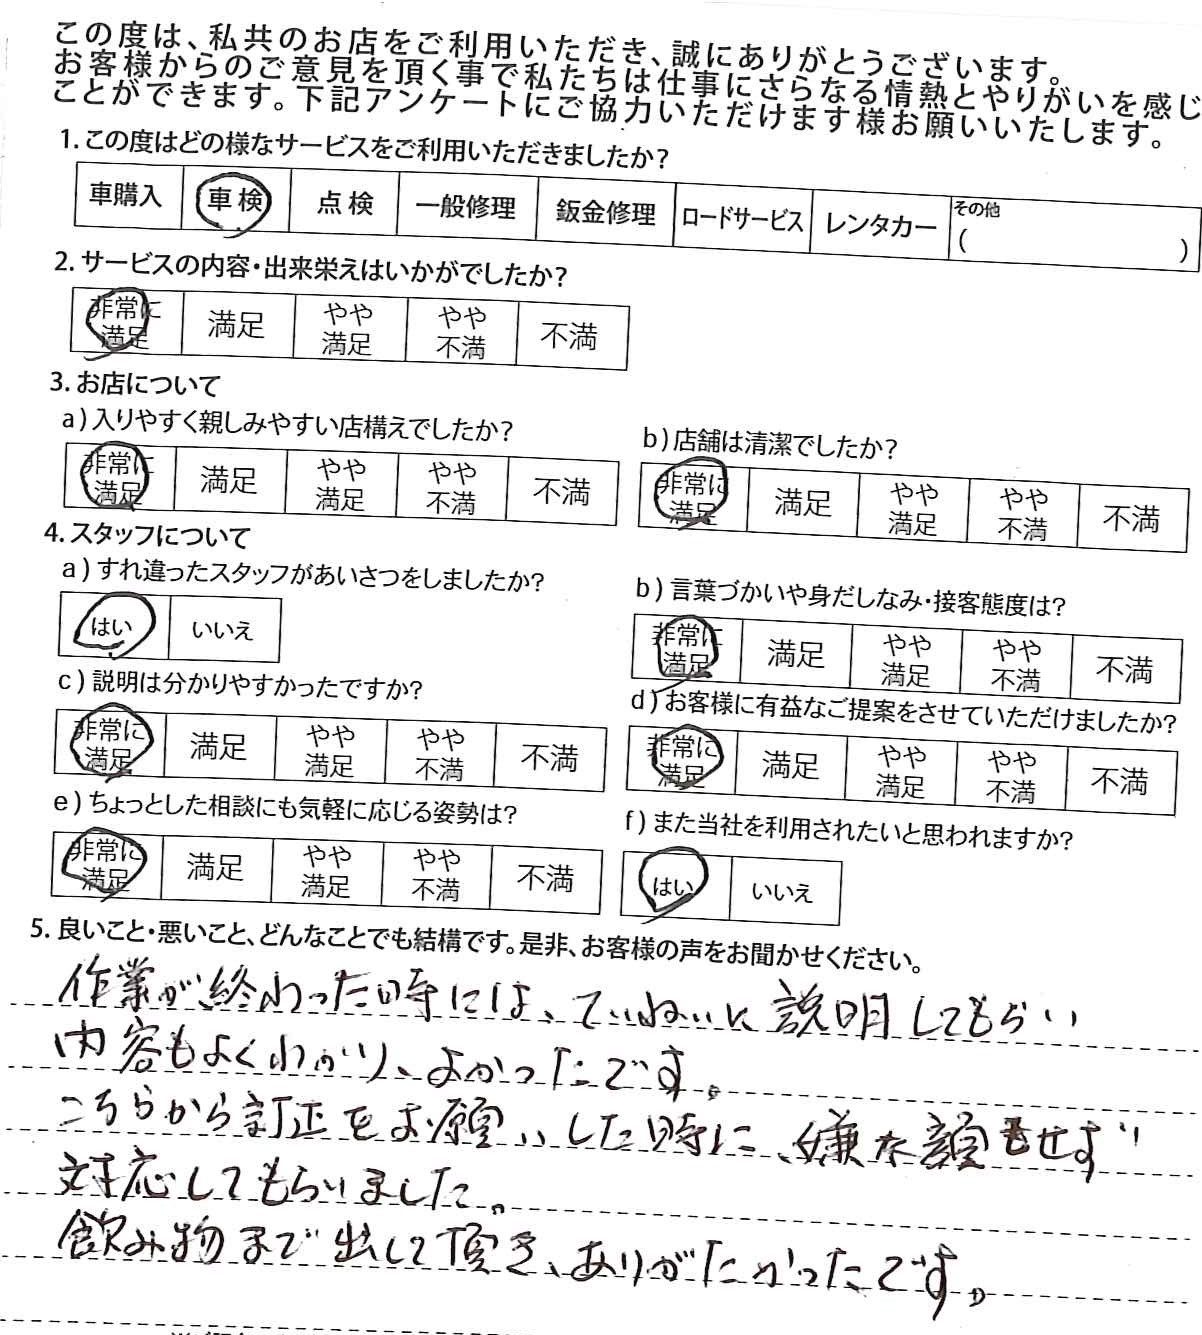 この度は、私共のお店をご利用いただき、誠にありがとうございます。
お客様からのご意見を頂く事で私たちは仕事にさらなる情熱とやりがいを感じ
ことができます。下記アンケートにご協力いただけます様お願いいたします。
1. この度はどの様なサービスをご利用いただきましたか?
車購入 車検 点検 一般修理 鈑金修理 ロードサービス レンタカー その他
( )
2. サービスの内容・出来栄えはいかがでしたか?
非常に満足 満足 やや満足 やや不満 不満
3. お店について
a) 入りやすく親しみやすい店構えでしたか?
非常に満足 満足 やや満足 やや不満 不満
b) 店舗は清潔でしたか?
非常に満足 満足 やや満足 やや不満 不満
4. スタッフについて
a) すれ違ったスタッフがあいさつをしましたか?
はい いいえ
b) 言葉づかいや身だしなみ・接客態度は?
非常に満足 満足 やや満足 やや不満 不満
c) 説明は分かりやすかったですか?
非常に満足 満足 やや満足 やや不満 不満
d) お客様に有益なご提案をさせていただけましたか?
非常に満足 満足 やや満足 やや不満 不満
e) ちょっとした相談にも気軽に応じる姿勢は?
非常に満足 満足 やや満足 やや不満 不満
f) また当社を利用されたいと思われますか?
はい いいえ
5. 良いこと・悪いこと、どんなことでも結構です。是非、お客様の声をお聞かせください。
作業が終わった時には、ていねいに説明してもらい
内容もよくわかり、よかったです。
こちらから訂正をお願いした時に、嫌な顔もせず
対応してもらいました。
飲み物まで出して頂き、ありがたかったです。